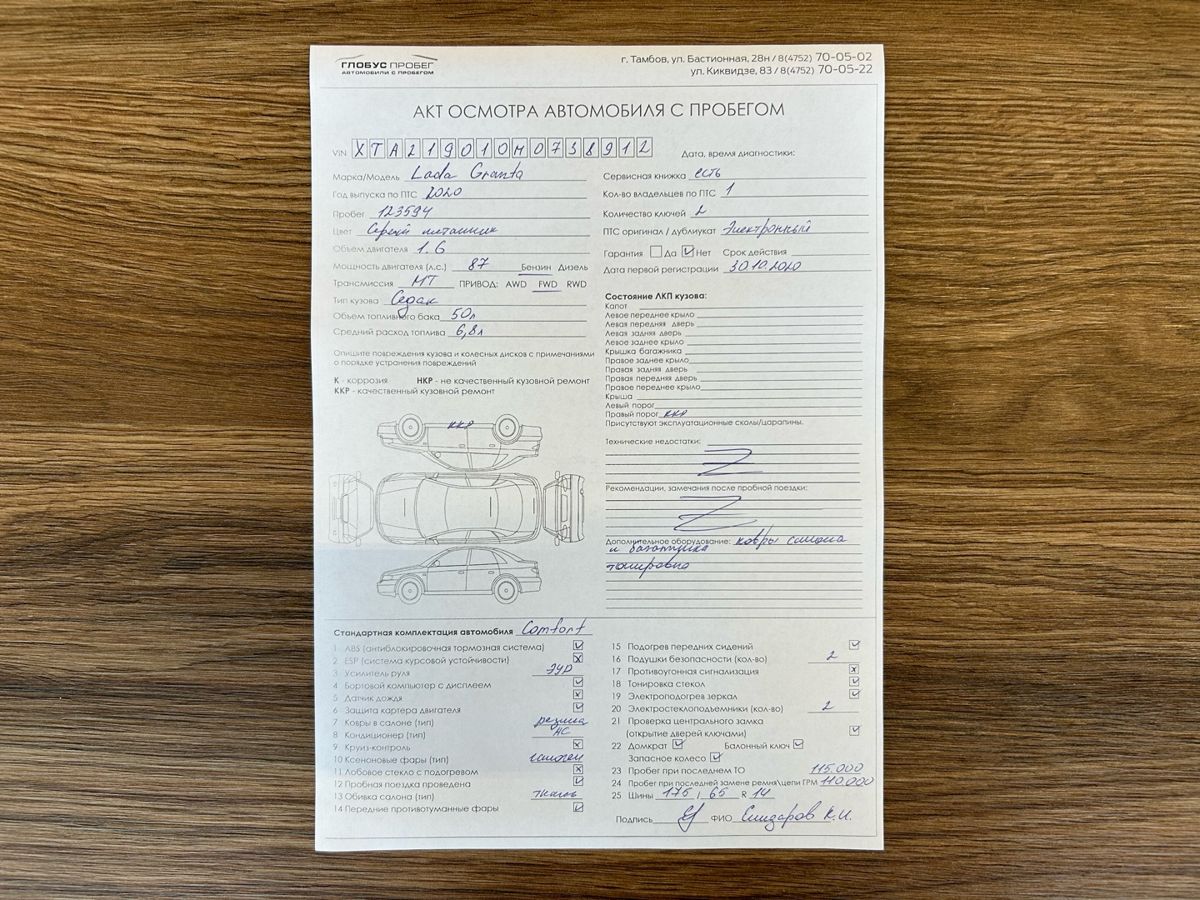 ГЛОБУС ПРОБЕГ
АВТОМОБИЛИ С ПРОБЕГОМ
г. Тамбов, ул. Бастионная, 28н / 8(4752) 70-05-02
ул. Киквидзе, 83 / 8(4752) 70-05-22
АКТ ОСМОТРА АВТОМОБИЛЯ С ПРОБЕГОМ
VIN XTA219010M0738912
Марка/Модель Lada Granta
Год выпуска по ПТС 2020
Пробег 123594
Цвет Серый металлик
Объем двигателя 1.6
Мощность двигателя (л.с.) 87 Бензин Дизель
Трансмиссия МТ ПРИВОД: AWD FWD RWD
Тип кузова Седан
Объем топливного бака 50л
Средний расход топлива 6,8л
Опишите повреждения кузова и колесных дисков с примечаниями
о порядке устранения повреждений
К - коррозия НКР - не качественный кузовной ремонт
ККР - качественный кузовной ремонт
ККР
Дата, время диагностики:
Сервисная книжка есть
Кол-во владельцев по ПТС 1
Количество ключей 2
ПТС оригинал / дубликат Электронный
Гарантия Да Нет Срок действия
Дата первой регистрации 30.10.2020
Состояние ЛКП кузова:
Капот
Левое переднее крыло
Левая передняя дверь
Левая задняя дверь
Левое заднее крыло
Крышка багажника
Правое заднее крыло
Правая задняя дверь
Правая передняя дверь
Правое переднее крыло
Крыша
Левый порог
Правый порог ККР
Присутствуют эксплуатационные сколы/царапины.
Технические недостатки:
Рекомендации, замечания после пробной поездки:
Дополнительное оборудование: ковры салона
и багажника
тонировка
Стандартная комплектация автомобиля Comfort
1 ABS (антиблокировочная тормозная система)
2 ESP (система курсовой устойчивости)
3 Усилитель руля ЭУР
4 Бортовой компьютер с дисплеем
5 Датчик дождя
6 Защита картера двигателя
7 Ковры в салоне (тип) резина
8 Кондиционер (тип) АС
9 Круиз-контроль
10 Ксеноновые фары (тип) галоген
11 Лобовое стекло с подогревом
12 Пробная поездка проведена
13 Обивка салона (тип) ткань
14 Передние противотуманные фары
15 Подогрев передних сидений
16 Подушки безопасности (кол-во) 2
17 Противоугонная сигнализация
18 Тонировка стекол
19 Электроподогрев зеркал
20 Электростеклоподъемники (кол-во) 2
21 Проверка центрального замка
(открытие дверей ключами)
22 Домкрат Балонный ключ
Запасное колесо
23 Пробег при последнем ТО 115.000
24 Пробег при последней замене ремня\цепи ГРМ 110.000
25 Шины 175 / 65 R 14
Подпись ФИО К.И.